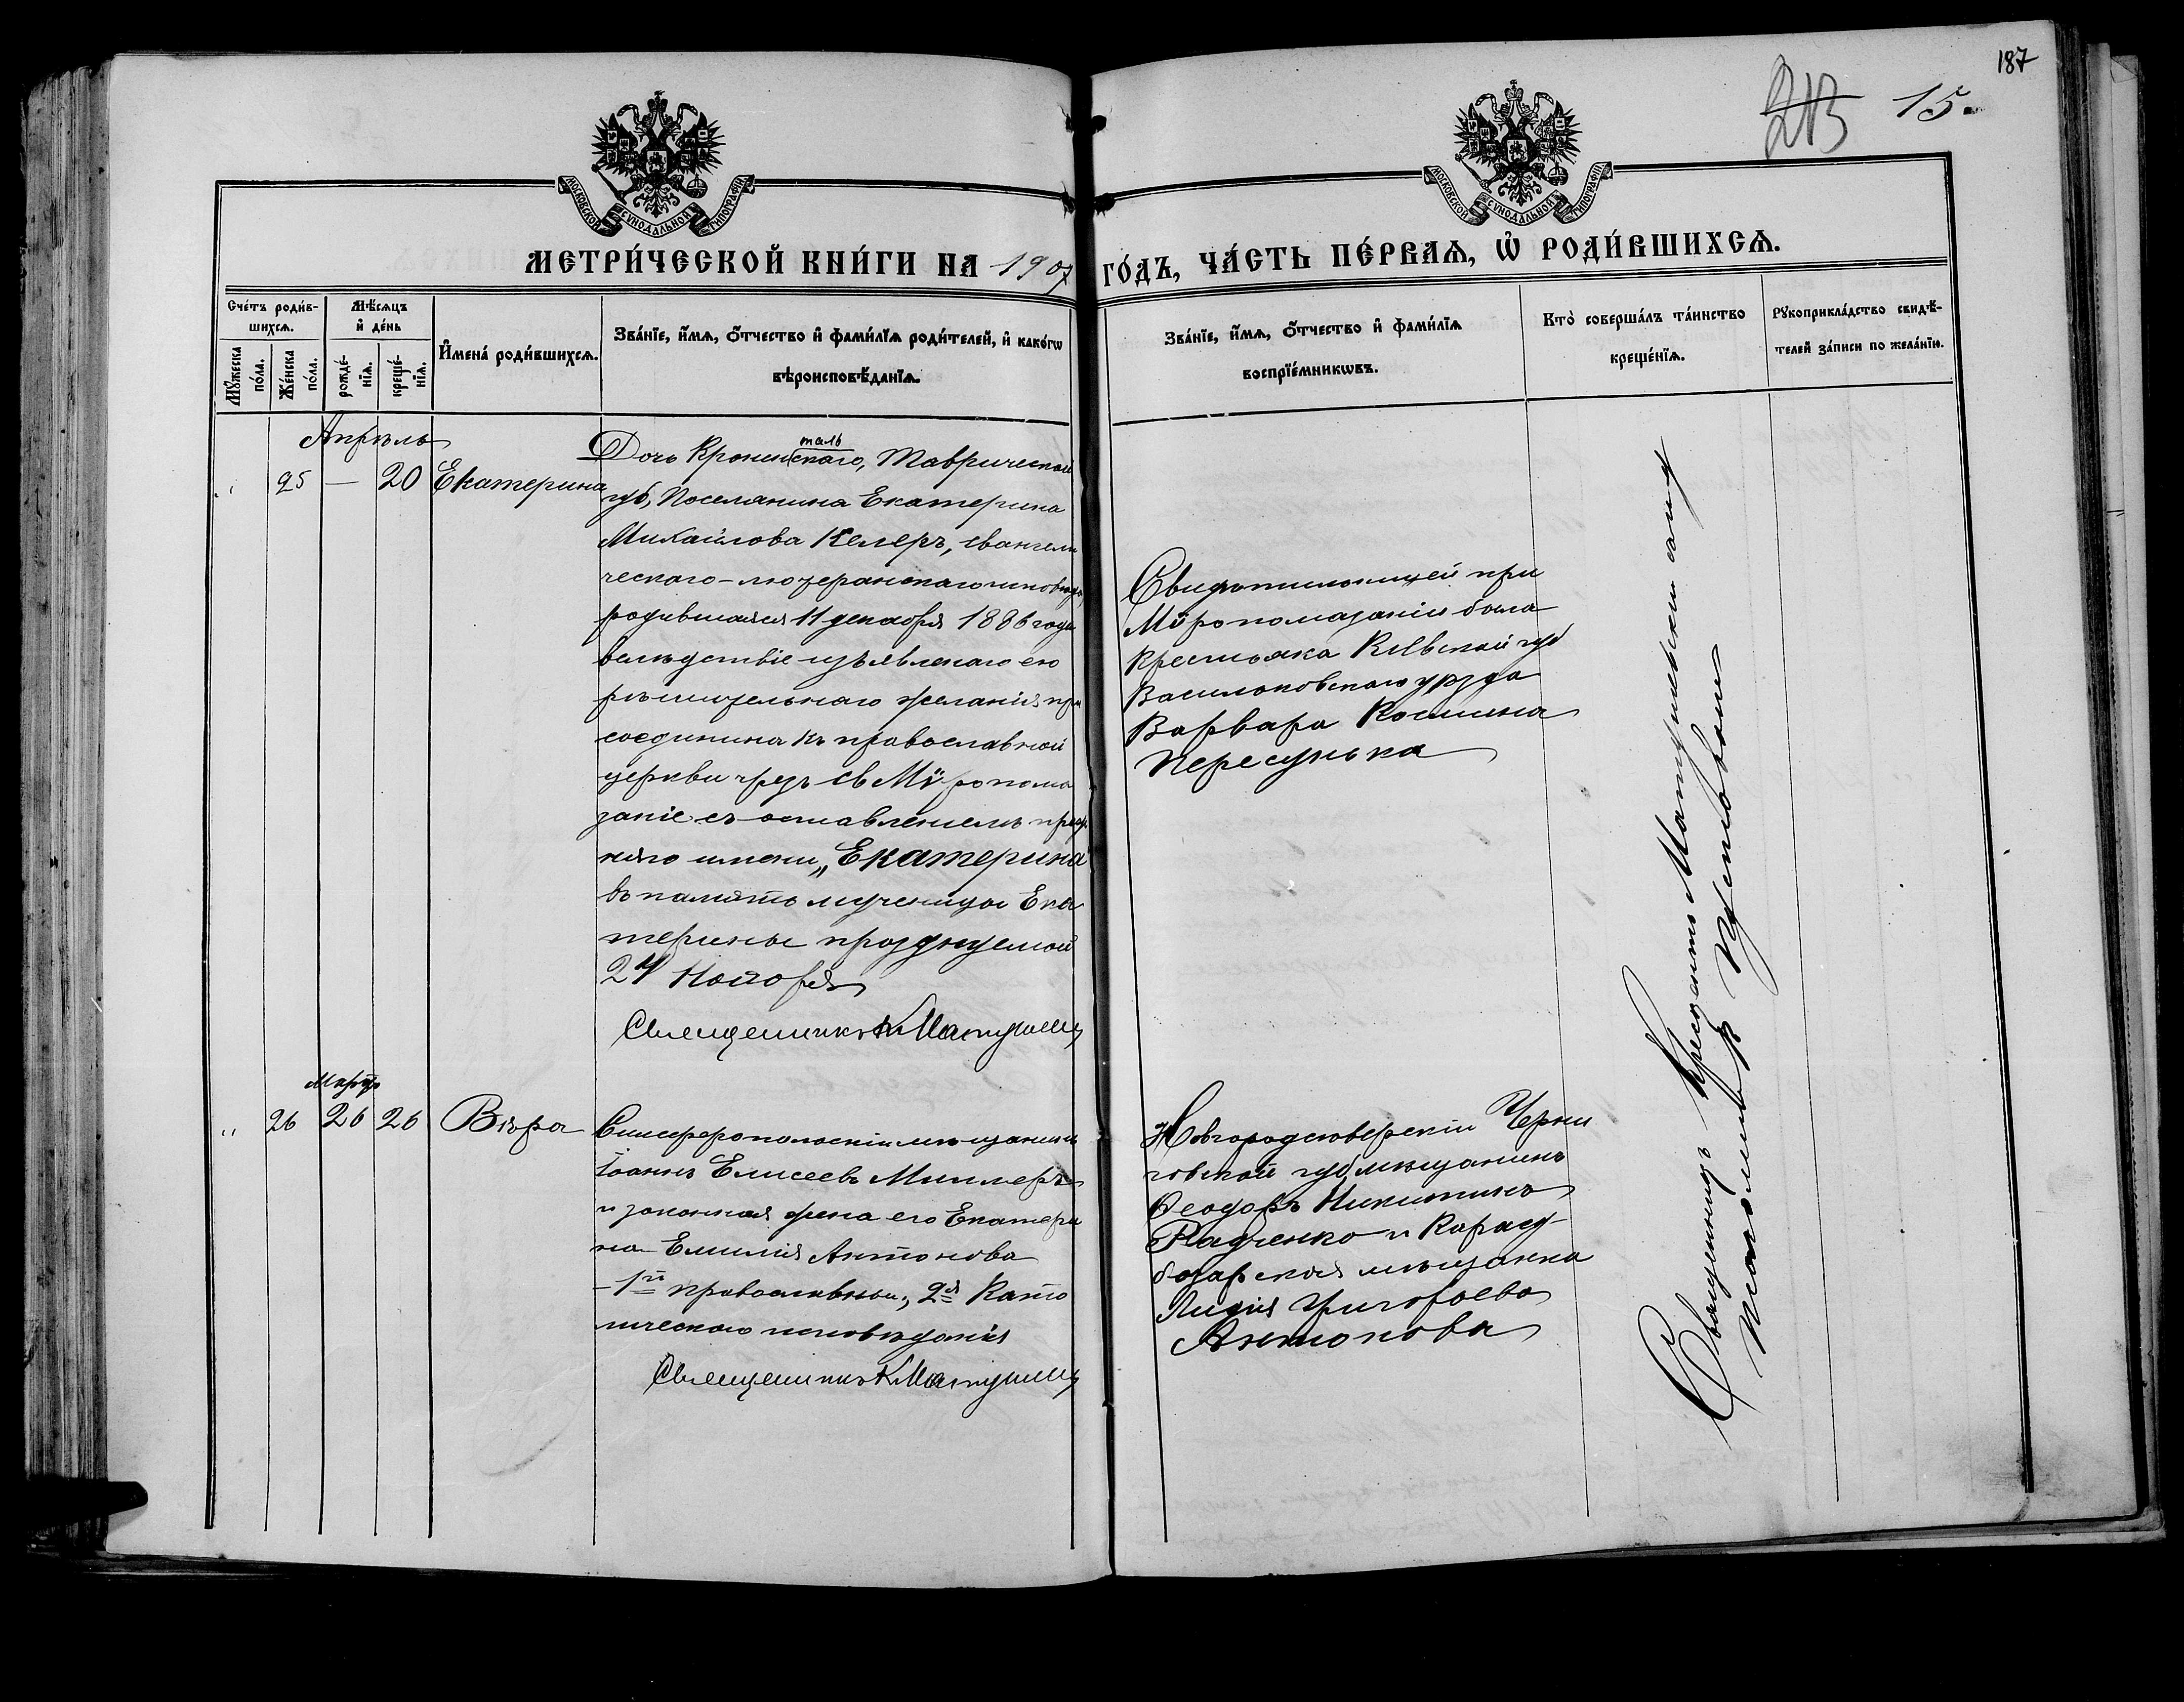 187
213 15.
МОСКОВСКОЙ СѴНОДАЛЬНОЙ ТИПОГРАФІИ
МОСКОВСКОЙ СѴНОДАЛЬНОЙ ТИПОГРАФІИ
МЕТРИ́ЧЕСКОЙ КНИ́ГИ НА 1907 ГО́ДЪ, ЧА́СТЬ ПЕ́РВАѦ, Ѽ РОДИ́ВШИХСѦ.
Сче́тъ роди́в-
шихсѧ.
Мꙋ́жеска по́ла.
Же́нска по́ла.
Мѣ́сѧцъ
и҆ де́нь
рожде́-
нїѧ.
креще́-
нїѧ.
И҆мена̀ роди́вшихсѧ.
Зва́нїе, и҆́мѧ, ѻ҆́тчество и҆ фами́лїѧ роди́телей, и҆ како́гѡ
вѣроисповѣ́данїѧ.
Зва́нїе, и҆́мѧ, ѻ҆́тчество и҆ фами́лїѧ
воспрїе́мникѡвъ.
Кто̀ соверша́лъ та́инство
креще́нїѧ.
Рꙋкоприкла́дство свидѣ́-
телей за́писи по жела́нїю.
Апрѣль
25 — 20 Екатерина
Дочь Кронен таль скаго, Таврической
губ, Поселянина Екатерина
Михайлова Келеръ, евангели
ческаго-лютеранскаго исповѣд,
родившаяся 11 декабря 1886 года
вслѣдствіе изъявленаго ею
рѣшительнаго желанія при
соединина къ православной
церкви чрезъ св Мѵропома
заніе съ оставленіемъ преж
няго имени „Екатерина
въ память мученицы Ека
терины празднуемой
24 Ноября
Священникъ К Матушевъ
Свидѣтильницей при
Мѵропомазаніи была
крестьянка Кіевской губ
Васильковскаго уѣзда
Варвара Космина
Пересунька
Мартъ
" 26 26 26 Вѣра
Симферопольскій мѣщанинъ
Іоаннъ Елисеевъ Миллеръ
и законная жена его Екатери
на-Емилія Антонова
-1й православнаи, 2я Като
лическаго исповѣданія
Священникъ К Матушевъ
Новгородсѣверскій Черни
говской губ, мѣщанинъ
Ѳеодоръ Никитинъ
Радченко и Карасу-
базарская мѣщанка
Лидія Григорьева
Антонова
Священникъ
Псаломщикъ